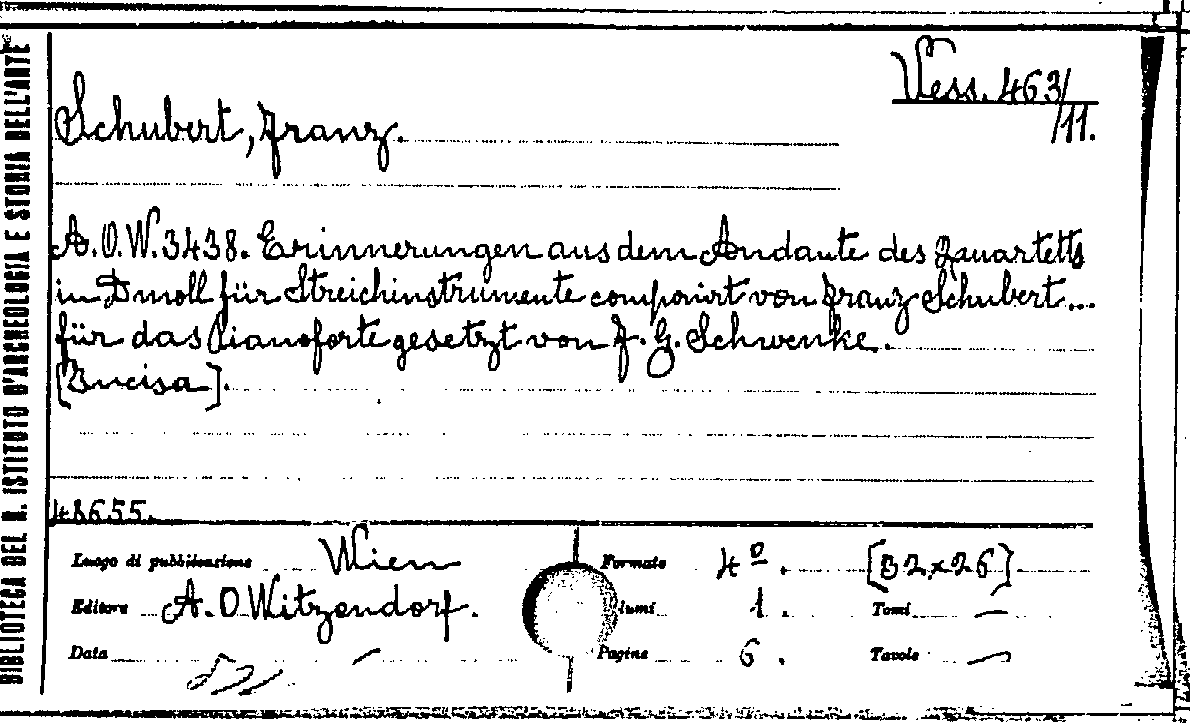 BIBLIOTECA DEL R. ISTITUTO D'ARCHEOLOGIA E STORIA DELL'ARTE
Vess. 463/
/11.
Schubert, Franz.
A.O.W. 3438. Erinnerungen aus dem Andante des Quartetts
in D moll für Streichinstrumente componirt von Franz Schubert...
für das Pianoforte gesetzt von F. G. Schwenke.
[Incisa].
48655.
Luogo di pubblicazione Wien
Formato 4º. [32x26]
Editore A. O Witzendorf.
lumi 1. Tomi —
Data —
Pagine 6. Tavole —